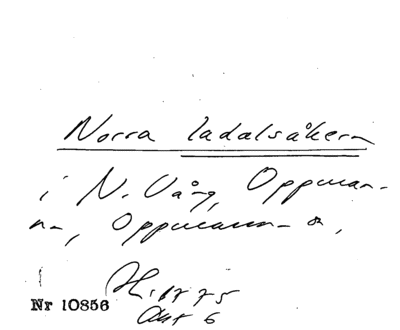 Norra ladalsåkern
i N. Vång, Oppman-
na, Oppmanna s,
Nr 10856
Akt 6